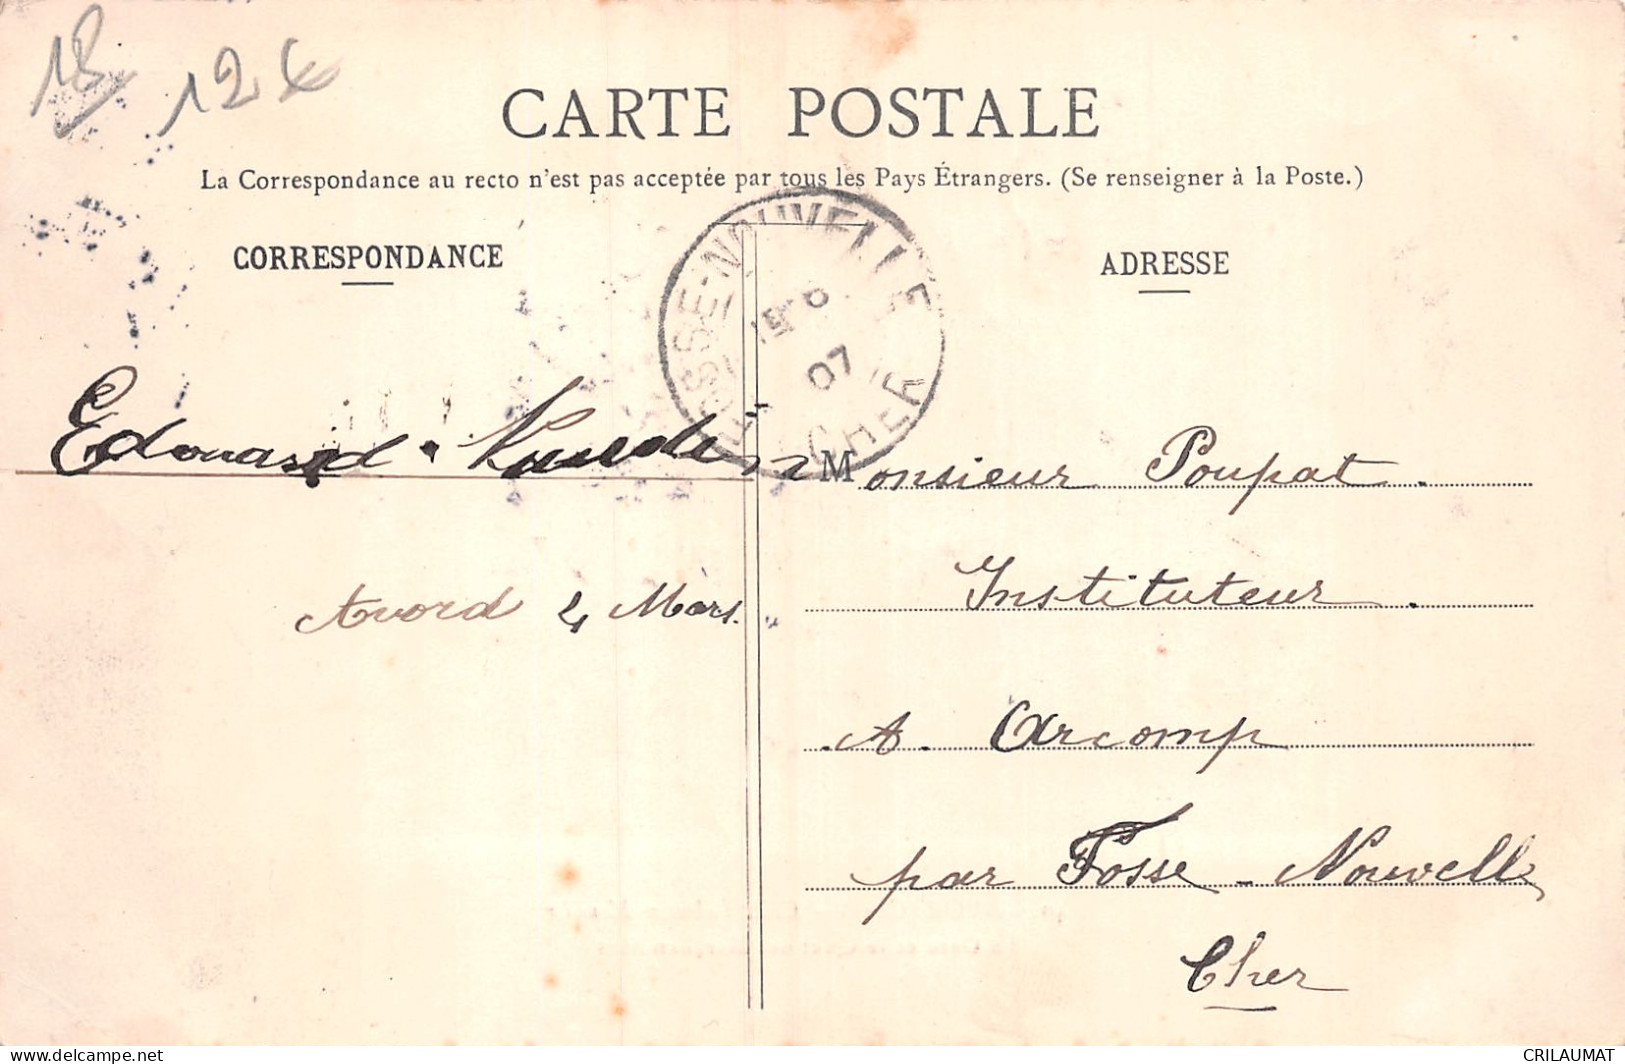 18 12€
CARTE POSTALE
La Correspondance au recto n'est pas acceptée par tous les Pays Étrangers. (Se renseigner à la Poste.)
CORRESPONDANCE
ADRESSE
FOSSE-NOUVELLE
07
CHER
Edouard
Monsieur Poupat.
Avord 4 Mars.
Instituteur.
A. Arcomp
par Fosse-Nouvelle
Cher
delcampe.net
CRILAUMAT